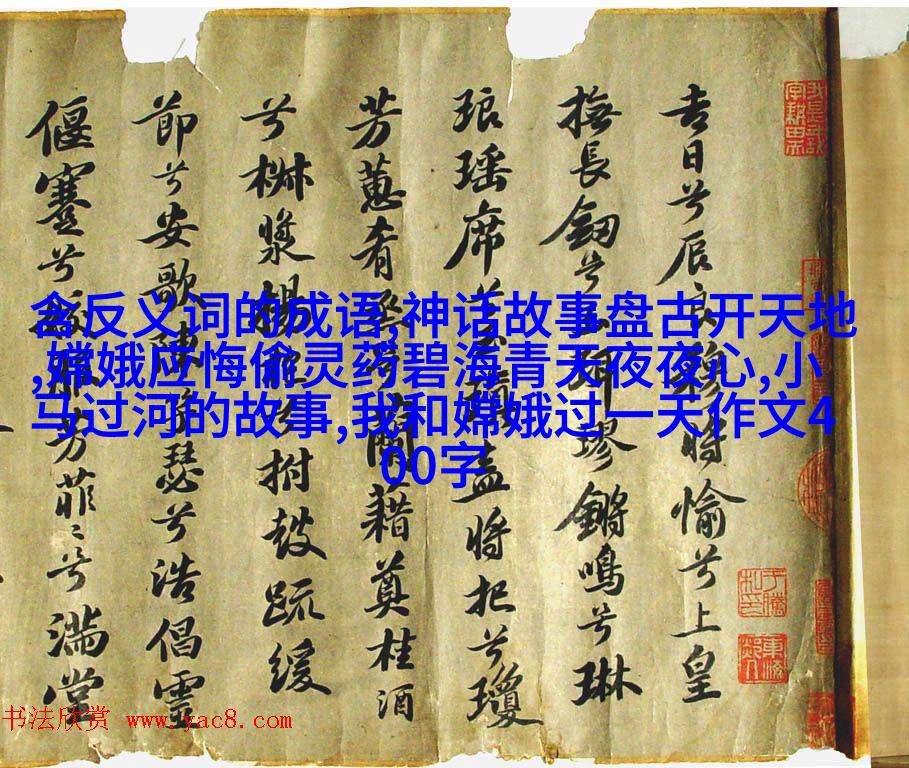 含反义词的成语,神话故事盘古开天地
,嫦娥应悔偷灵药碧海青天夜夜心,小
马过河的故事,我和嫦娥过一天作文4
00字
吉日兮辰良穆將愉兮上皇
撫長劒兮玉珥璆鏘鳴兮琳
琅瑶席兮玉瑱盍將把兮瓊
芳蕙肴烝兮蘭藉奠桂酒
兮椒漿揚枹兮拊鼓疏緩
節兮安歌陳竽瑟兮浩倡靈
偃蹇兮姣服芳菲〻兮滿堂
书法欣赏 www.yac8.com